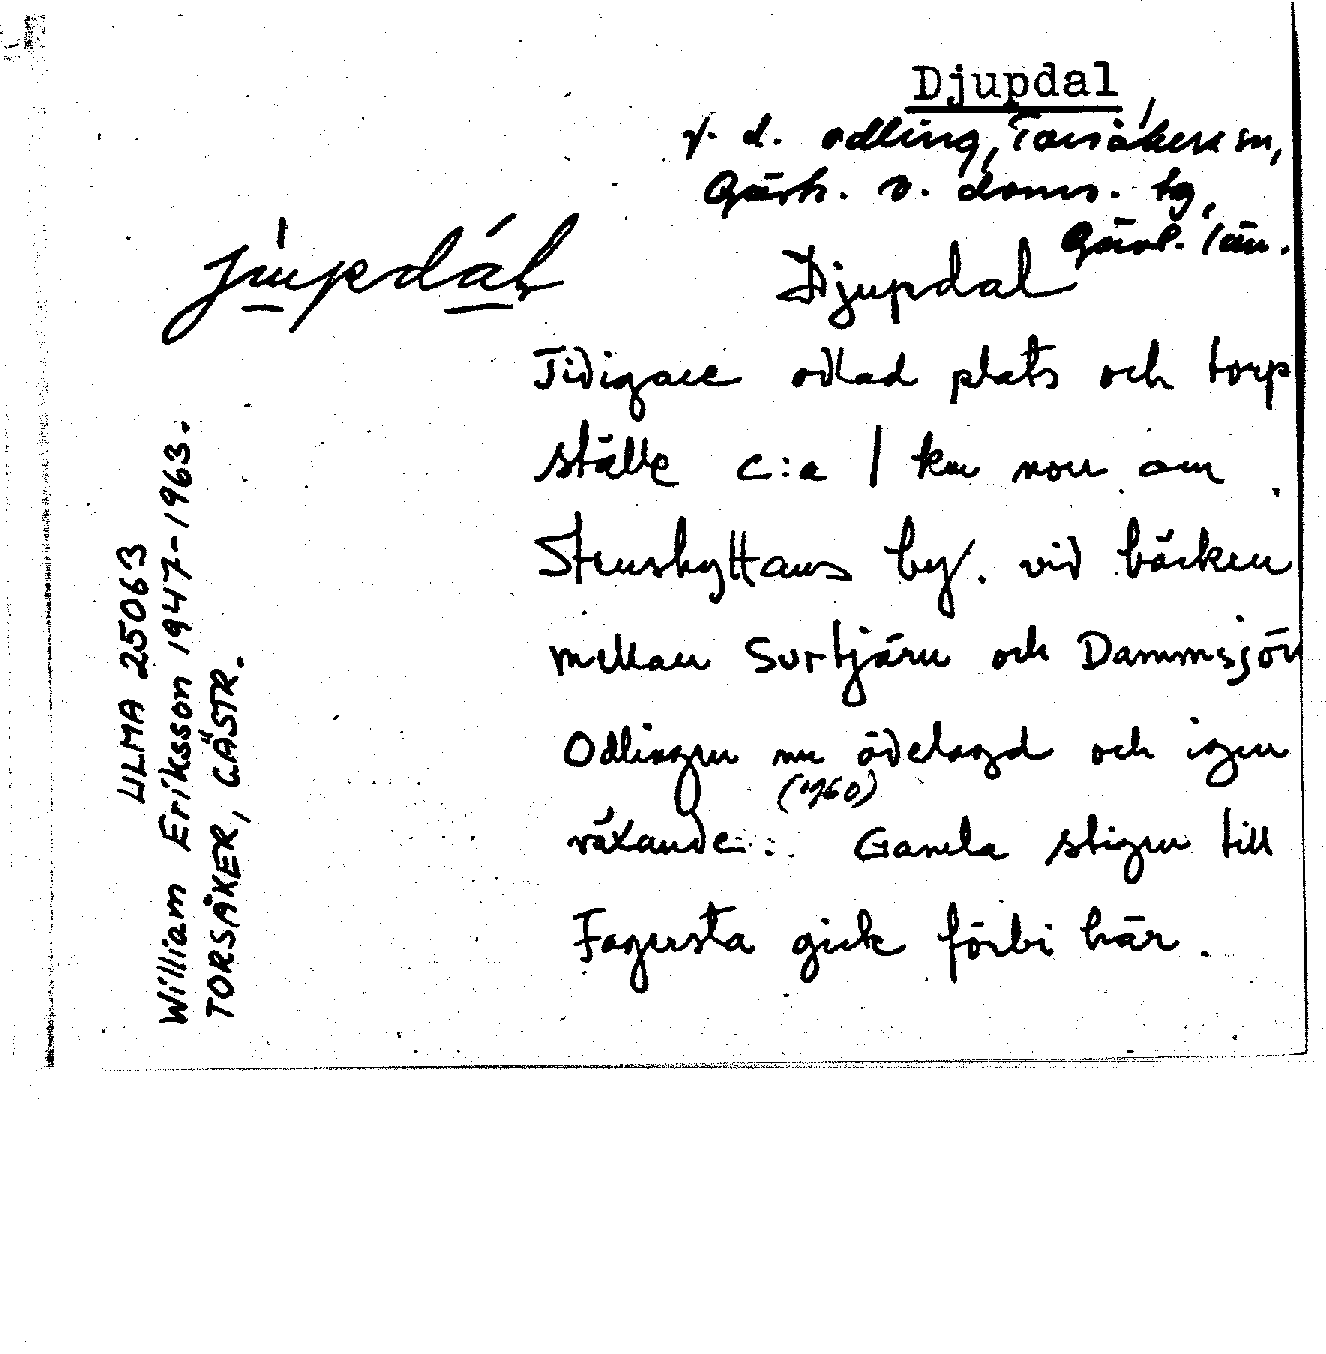 Djupdal
f. d. odling, Torsåkers sn,
Gästr. ö. doms. tg,
Gävl. län.
jupdal
Djupdal
Tidigare odlad plats och torp
ställe c:a 1 km norr om
Stenshyttans by. vid bäcken
mellan Surtjärn och Dammsjön
Odlingen nu ödelagd och igen
(1960)
växande. Gamla stigen till
Fagersta gick förbi här.
ULMA 25063
William Eriksson 1947-1963.
TORSÅKER, GÄSTR.